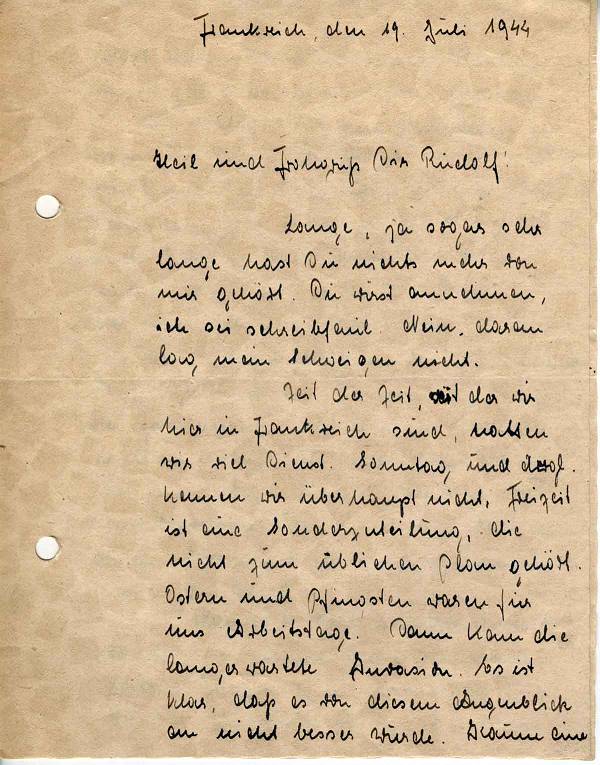 Frankreich, den 19. Juli 1944
Heil und Frohgruß Dir Rudolf!
Lange, ja sogar sehr
lange hast Du nichts mehr von
mir gehört. Du wirst annehmen,
ich sei schreibfaul. Nein, daran
lag mein Schweigen nicht.
Zeit der Zeit, seit der wir
hier in Frankreich sind, hatten
wir viel Dienst. Sonntag und dergl.
kennen wir überhaupt nicht. Freizeit
ist eine Sonderzuteilung, die
nicht zum üblichen Plan gehört.
Ostern und Pfingsten waren für
uns Arbeitstage. Dann kam die
langerwartete Invasion. Es ist
klar, daß es von diesem Augenblick
an nicht besser würde. Kaum eine